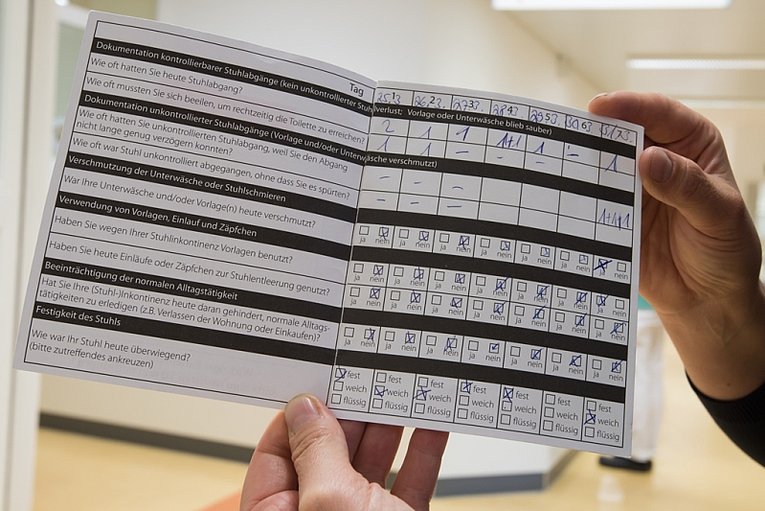 Tag 25.3 26.3 27.3 28.3 29.3 30.3 31.3
Dokumentation kontrollierbarer Stuhlabgänge (kein unkontrollierter Stuhlverlust: Vorlage oder Unterwäsche blieb sauber)
Wie oft hatten Sie heute Stuhlgang? 2 1 1 1+1 1 -
Wie oft mussten Sie sich beeilen, um rechtzeitig die Toilette zu erreichen? 1 1 - - - - 1
Dokumentation unkontrollierter Stuhlabgänge (Vorlage und/oder Unterwäsche verschmutzt)
Wie oft hatten Sie unkontrollierten Stuhlgang, weil Sie den Abgang
nicht lange genug verzögern konnten? - - -
Wie oft war Stuhl unkontrolliert abgegangen, ohne dass Sie es spürten? - - -
Verschmutzung der Unterwäsche oder Stuhlschmieren
War Ihre Unterwäsche und/oder Vorlage(n) heute verschmutzt? ja nein ja nein ja nein ja nein ja nein ja nein ja nein
Verwendung von Vorlagen, Einlauf und Zäpfchen
Haben Sie wegen Ihrer Stuhlinkontinenz Vorlagen benutzt? ja nein ja nein ja nein ja nein ja nein ja nein ja nein
Haben Sie heute Einläufe oder Zäpfchen zur Stuhlentleerung genutzt? ja nein ja nein ja nein ja nein ja nein ja nein ja nein
Beeinträchtigung der normalen Alltagstätigkeit
Hat Sie Ihre (Stuhl-)Inkontinenz heute daran gehindert, normale Alltags-
tätigkeiten zu erledigen (z.B. Verlassen der Wohnung oder Einkaufen)? ja nein ja nein ja nein ja nein ja nein ja nein ja nein
Festigkeit des Stuhls
Wie war Ihr Stuhl heute überwiegend? fest fest fest fest fest fest fest
(bitte zutreffendes ankreuzen) weich weich weich weich weich weich weich
flüssig flüssig flüssig flüssig flüssig flüssig flüssig